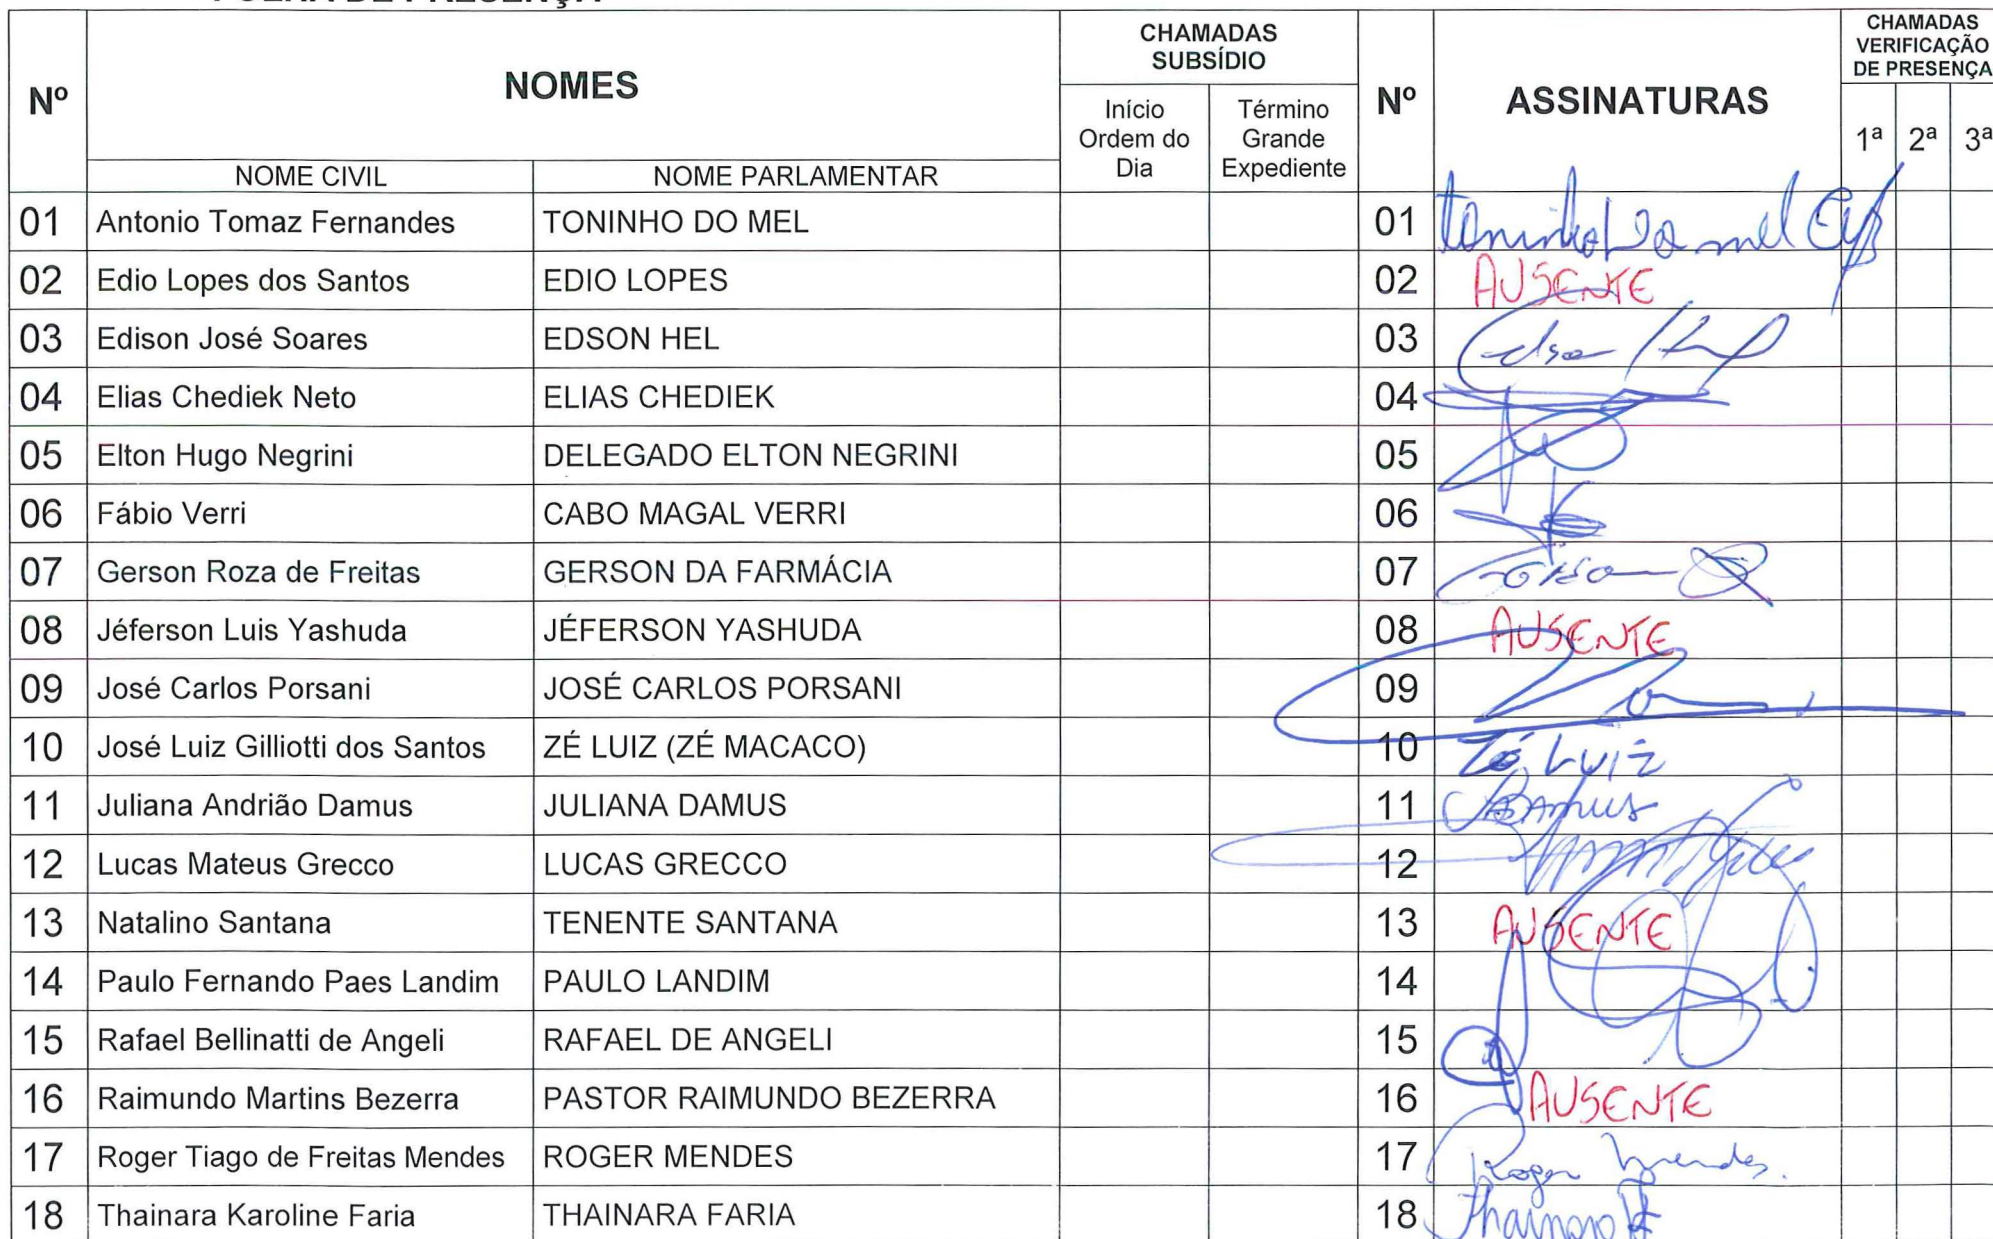 FOLHA DE PRESENÇA
Nº NOMES CHAMADAS SUBSÍDIO Nº ASSINATURAS CHAMADAS VERIFICAÇÃO DE PRESENÇA
NOME CIVIL NOME PARLAMENTAR Início Ordem do Dia Término Grande Expediente 1ª 2ª 3ª
01 Antonio Tomaz Fernandes TONINHO DO MEL 01 Toninho Do mel
02 Edio Lopes dos Santos EDIO LOPES 02 AUSENTE
03 Edison José Soares EDSON HEL 03 Edson Hel
04 Elias Chediek Neto ELIAS CHEDIEK 04
05 Elton Hugo Negrini DELEGADO ELTON NEGRINI 05
06 Fábio Verri CABO MAGAL VERRI 06
07 Gerson Roza de Freitas GERSON DA FARMÁCIA 07 Gerson
08 Jéferson Luis Yashuda JÉFERSON YASHUDA 08 AUSENTE
09 José Carlos Porsani JOSÉ CARLOS PORSANI 09
10 José Luiz Gilliotti dos Santos ZÉ LUIZ (ZÉ MACACO) 10 Zé Luiz
11 Juliana Andrião Damus JULIANA DAMUS 11 Damus
12 Lucas Mateus Grecco LUCAS GRECCO 12
13 Natalino Santana TENENTE SANTANA 13 AUSENTE
14 Paulo Fernando Paes Landim PAULO LANDIM 14
15 Rafael Bellinatti de Angeli RAFAEL DE ANGELI 15
16 Raimundo Martins Bezerra PASTOR RAIMUNDO BEZERRA 16 AUSENTE
17 Roger Tiago de Freitas Mendes ROGER MENDES 17 Roger Mendes.
18 Thainara Karoline Faria THAINARA FARIA 18 Thainara F